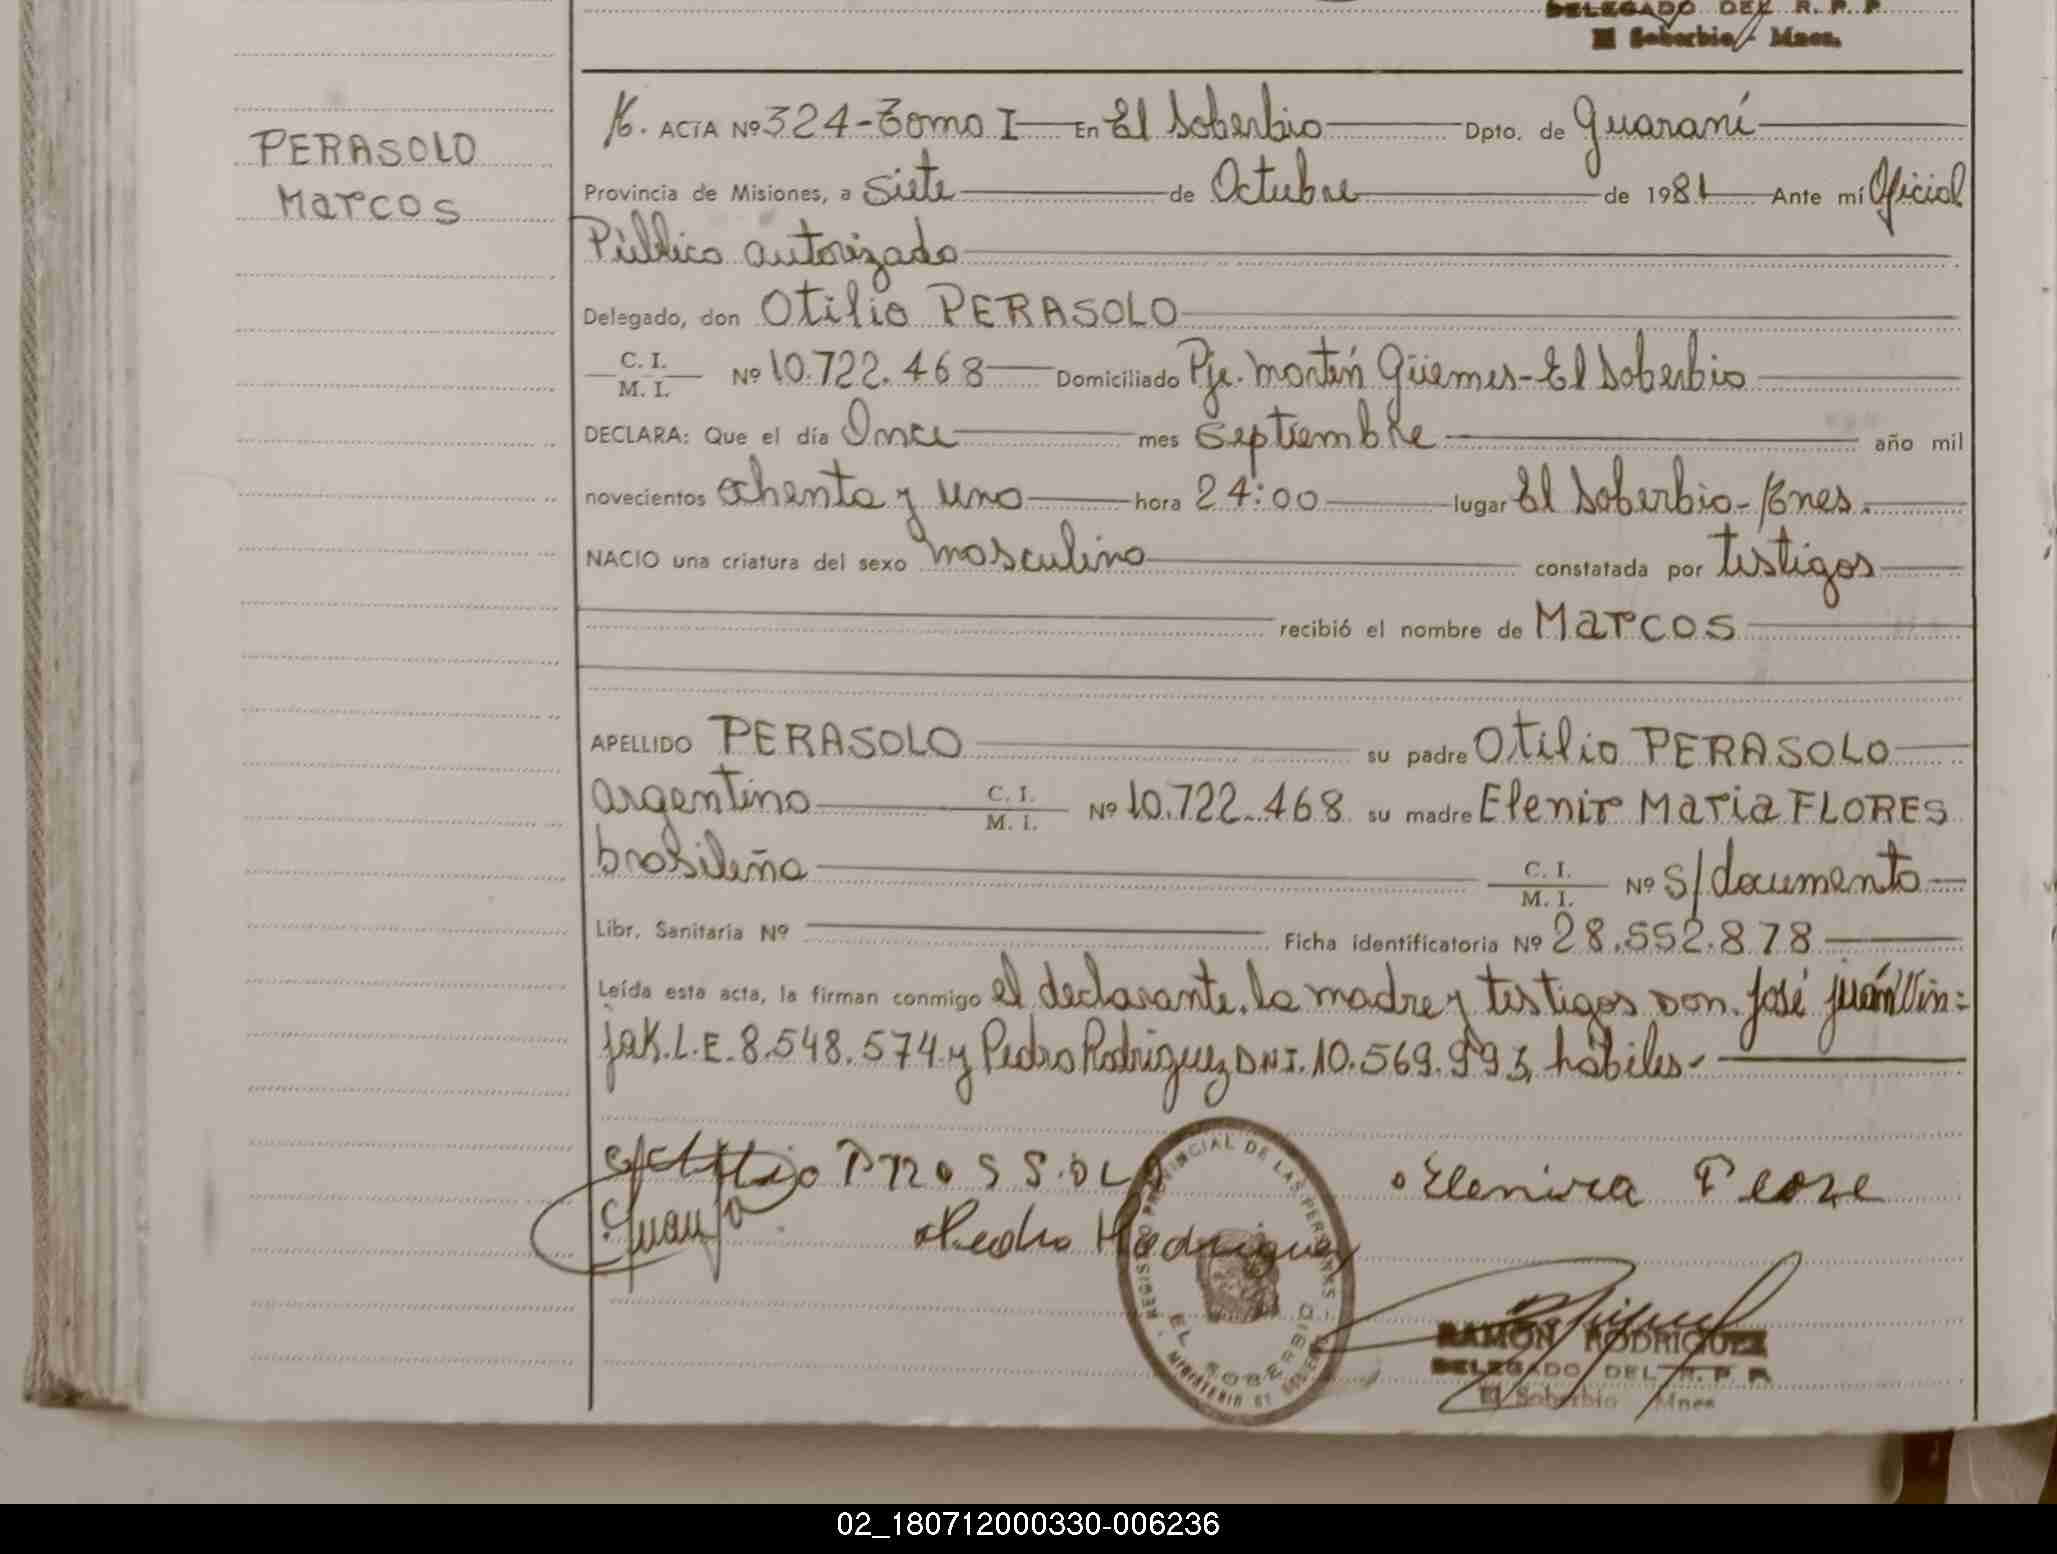 DELEGADO DEL R. P. P.
El Soberbio - Mnes.
PERASOLO
Marcos
ACTA Nº 324 - Tomo I En El Soberbio Dpto. de Guaraní
Provincia de Misiones, a siete de Octubre de 1981 Ante mí Oficial
Público autorizado
Delegado, don Otilio PERASOLO
C. I.
M. I. Nº 10.722.468 Domiciliado Pje. Martín Güemes - El Soberbio
DECLARA: Que el día Once mes Septiembre año mil
novecientos ochenta y uno hora 24:00 lugar El Soberbio -
NACIO una criatura del sexo masculino constatada por testigos
recibió el nombre de Marcos
APELLIDO PERASOLO su padre Otilio PERASOLO
argentino C. I. M. I. Nº 10.722.468 su madre Elenir Maria FLORES
brasileña C. I. M. I. Nº s/documento
Libr. Sanitaria Nº Ficha identificatoria Nº 28.552.878
Leída esta acta, la firman conmigo el declarante, la madre y testigos Don. José Juán Vin=
jak. L.E. 8.548.574 y Pedro Rodriguez DNI. 10.569.993, hábiles-
Elenira
Pedro Rodriguez
REGISTRO PROVINCIAL DE LAS PERSONAS
EL SOBERBIO
RAMON RODRIGUEZ
DELEGADO DEL R. P. P.
El Soberbio Mnes
02_180712000330-006236